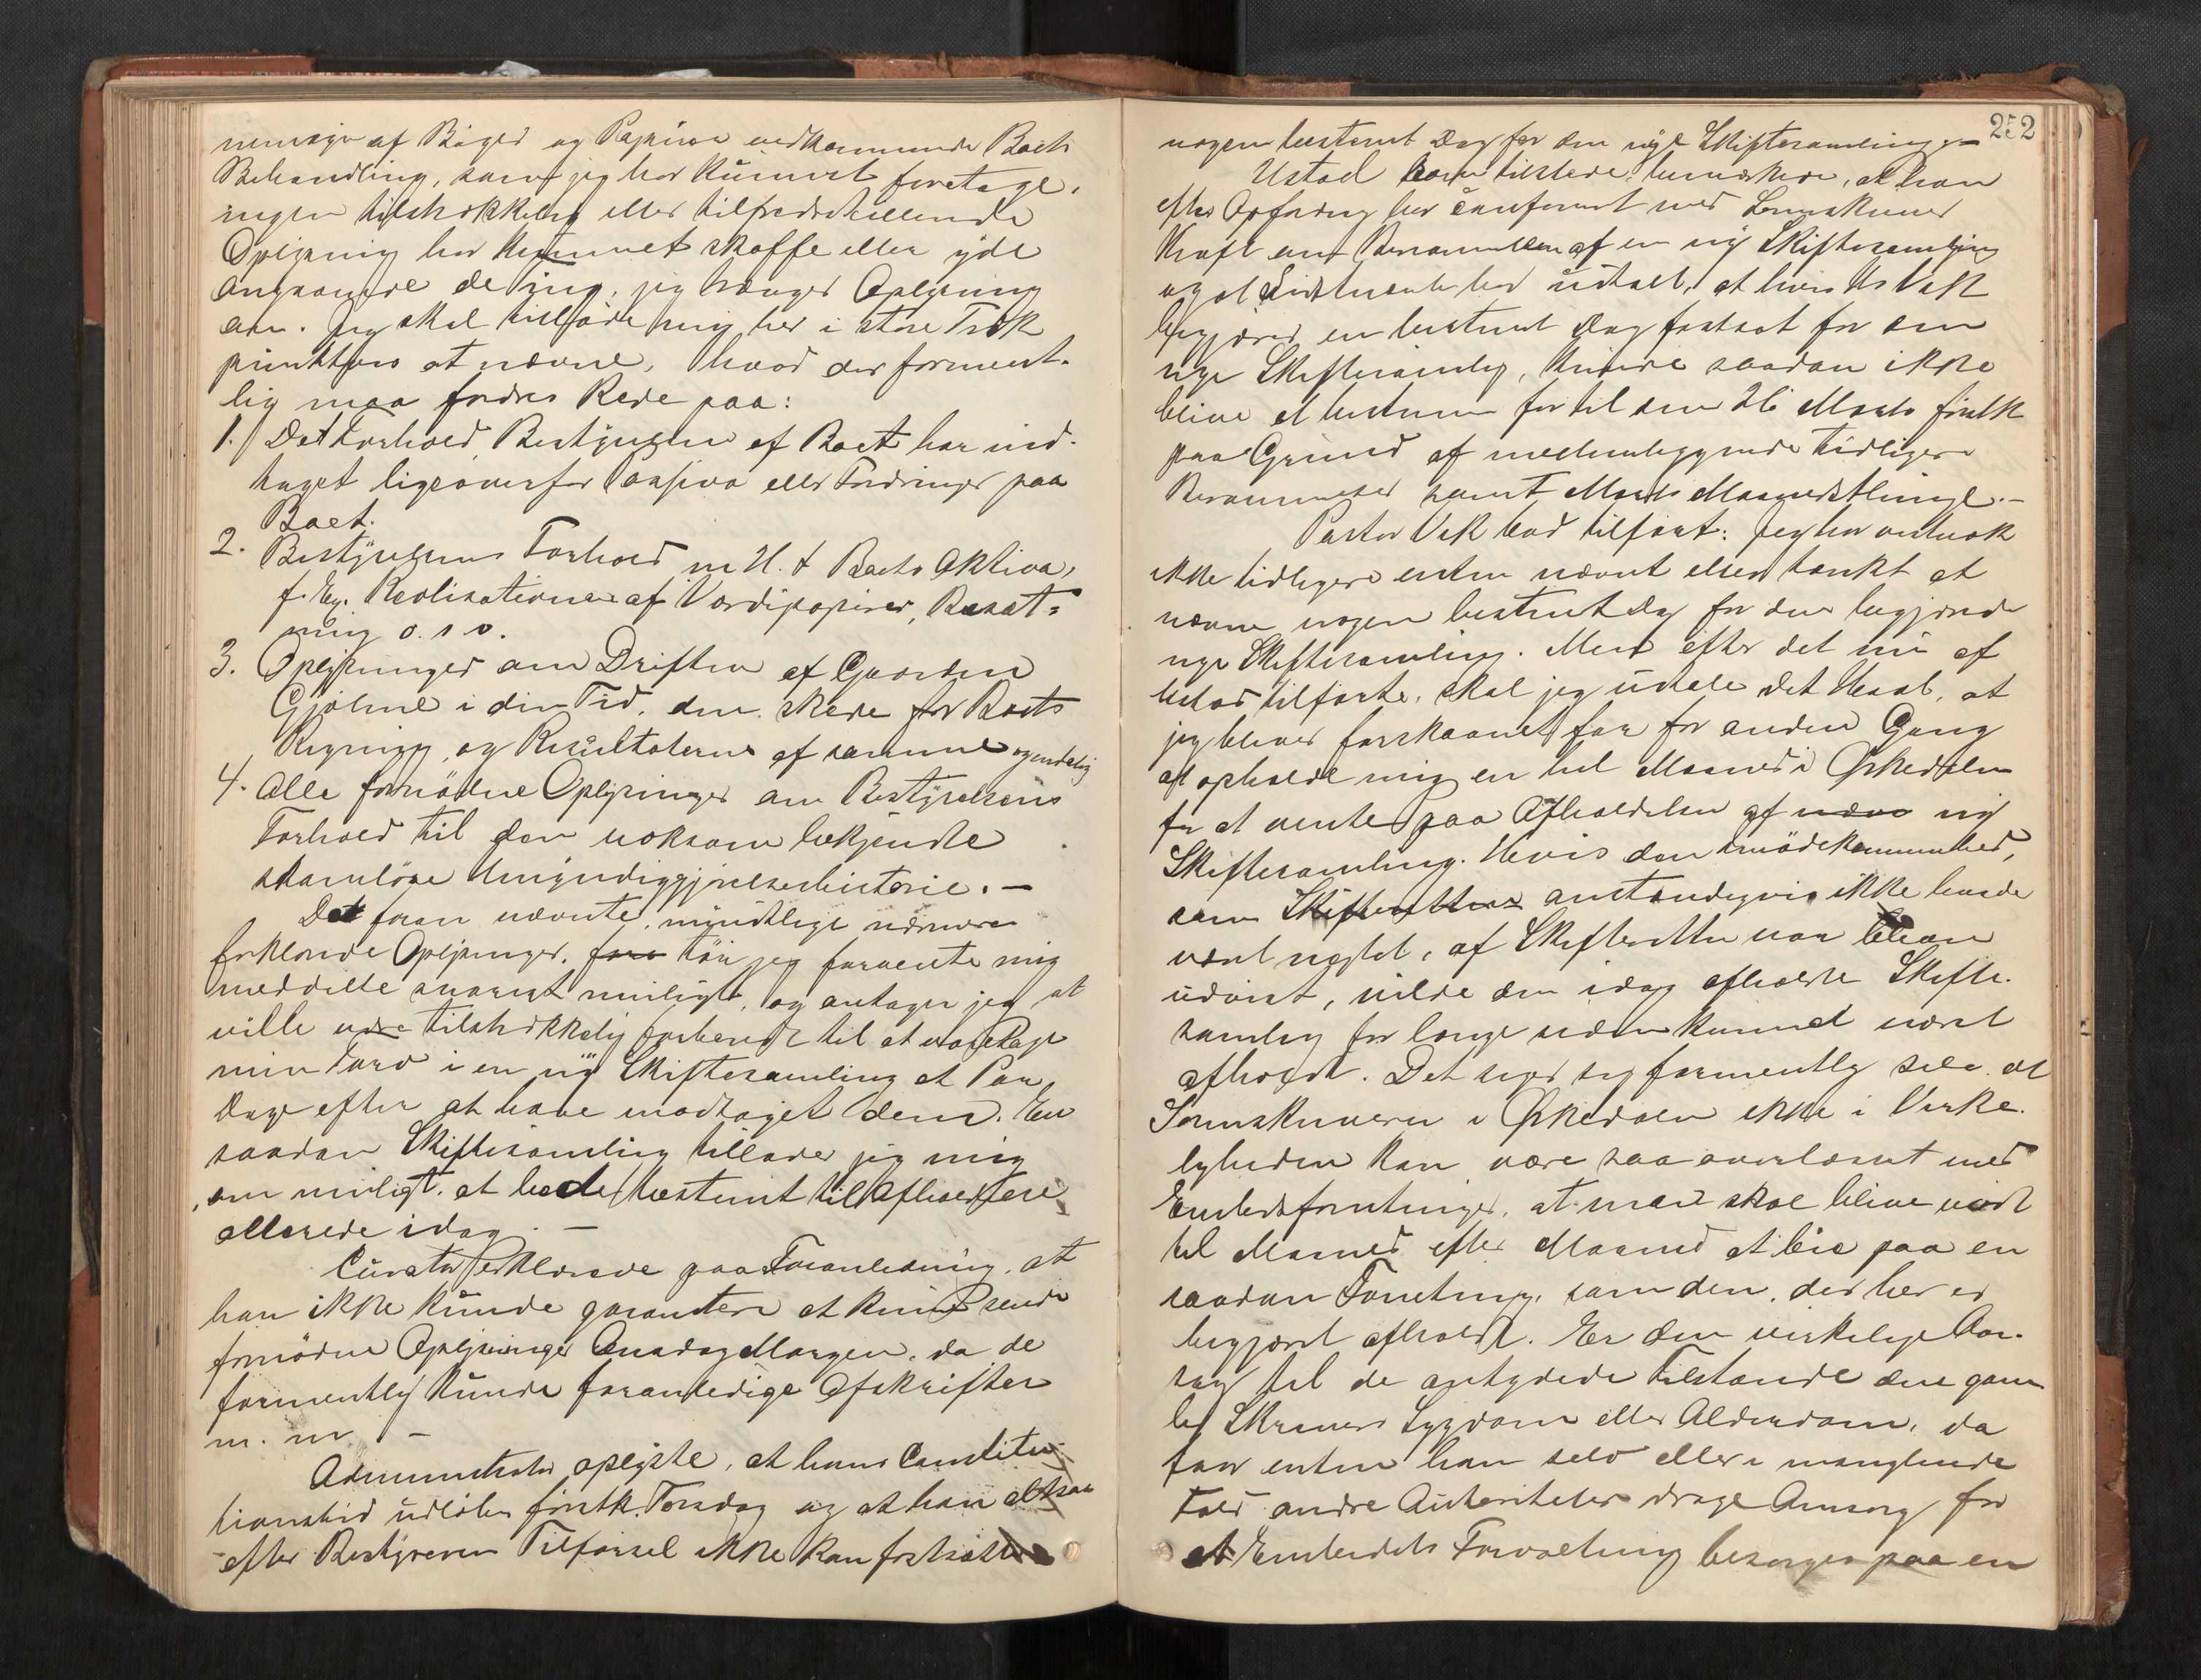 nemsyn af Bøger og Papirer vedkommende Boets
Behandling, som jeg har kunnet foretage,
ingen tilstrækkelig eller tilfredsstillende
Oplysning har kunnet skaffe eller yde
angaaende de Ting, jeg trænger Oplysning
om. Jeg skal tillade mig her i store Træk
punktvis at nævne, hvad der forment-
lig maa fordres Rede paa:
1. Det Forhold, Bestyrelsen af Boet har ind-
taget ligeoverfor Passiva eller Fordringer paa
Boet.
2. Bestyrelsens Forhold m. H. t. Boets Aktiva,
f. Ex. Realisationen af Værdipapirer, Besæt-
ning o. s. v.
3. Oplysninger om Driften af Gaarden
Gjølme i din Tid, den skede for Boets
Regning, og Resultaterne af samme og endelig
4. Alle fornødne Oplysninger om Bestyrelsens
Forhold til den noksom bekjendte
skamløse Umyndiggjørelseshistorie. —
Det foran nævnte, mundtlige nærmere
forklarende Oplysninger, tør jeg forvente mig
meddelte snarest muligt, og antager jeg at
ville være tilstrækkelig forberedt til at varetage
min Tarv i en ny Skiftesamling et Par
Dage efter at have modtaget dem. En
saadan Skiftesamling tillader jeg mig,
om muligt, at bede bestemt til Afholdelse
allerede idag. —
Curator erklærede paa Foranledning, at
han ikke kunde garantere at kunne sende
fornødne Oplysninger Onsdag Morgen, da de
formentlig kunde foranledige Afskrifter
m. m. —
Administrator oplyste, at hans Constitu-
tionstid udløber førstk. Torsdag og at han altsaa
efter Bestyrerens Tilførsel ikke kan fastsætte
252
nogen bestemt Dag for den nye Skiftesamling. —
Ustad som tilstede bemærkede, at han
efter Opfordring har confereret med Sorenskriver
Kraft om Berammelsen af en ny Skiftesamling
og at har udtalt, at hvis Hr Vak
begjærer en bestemt Dag fastsat for den
nye Skiftesamling, kunde saadan ikke
blive at bestemme før til den 26 Marts førstk
paa Grund af mellemliggende tidligere
Berammelser samt Marts Maanedsthinge. —
Pastor Vak bad tilført: Jeg har vistnok
ikke tidligere enten nævnt eller tænkt at
nævne nogen bestemt Dag for den begjærede
nye Skiftesamling. Men efter det nu af
Ustad tilførte, skal jeg udtale det Haab, at
jeg bliver forskaanet for for anden Gang
at opholde mig en hel Maaned i Ørkedalen
for at vente paa Afholdelsen af ny
Skiftesamling. Hvis den Imødekommenhed,
som Skifteretten anstændigvis ikke burde
været nægtet, af Skifteretten var bleven
udvist, vilde den idag afholdte Skifte-
samling for længe siden kunnet været
afholdt. Det siger sig formentlig selv at
Sorenskriveren i Ørkedalen ikke i Virke-
ligheden kan være saa overlæsset med
Embedsforretninger, at man skal blive nødt
til Maaned efter Maaned at bie paa en
saadan Forretning, som den, der her er
begjæret afholdt. Er den virkelige Aar-
sag til de antydede Tilstande den gam-
le Skrivers Sygdom eller Alderdom, da
faar enten han selv eller i manglende
Fald andre Autoriteter drage Omsorg for
at Embedets Forvaltning besørges paa en